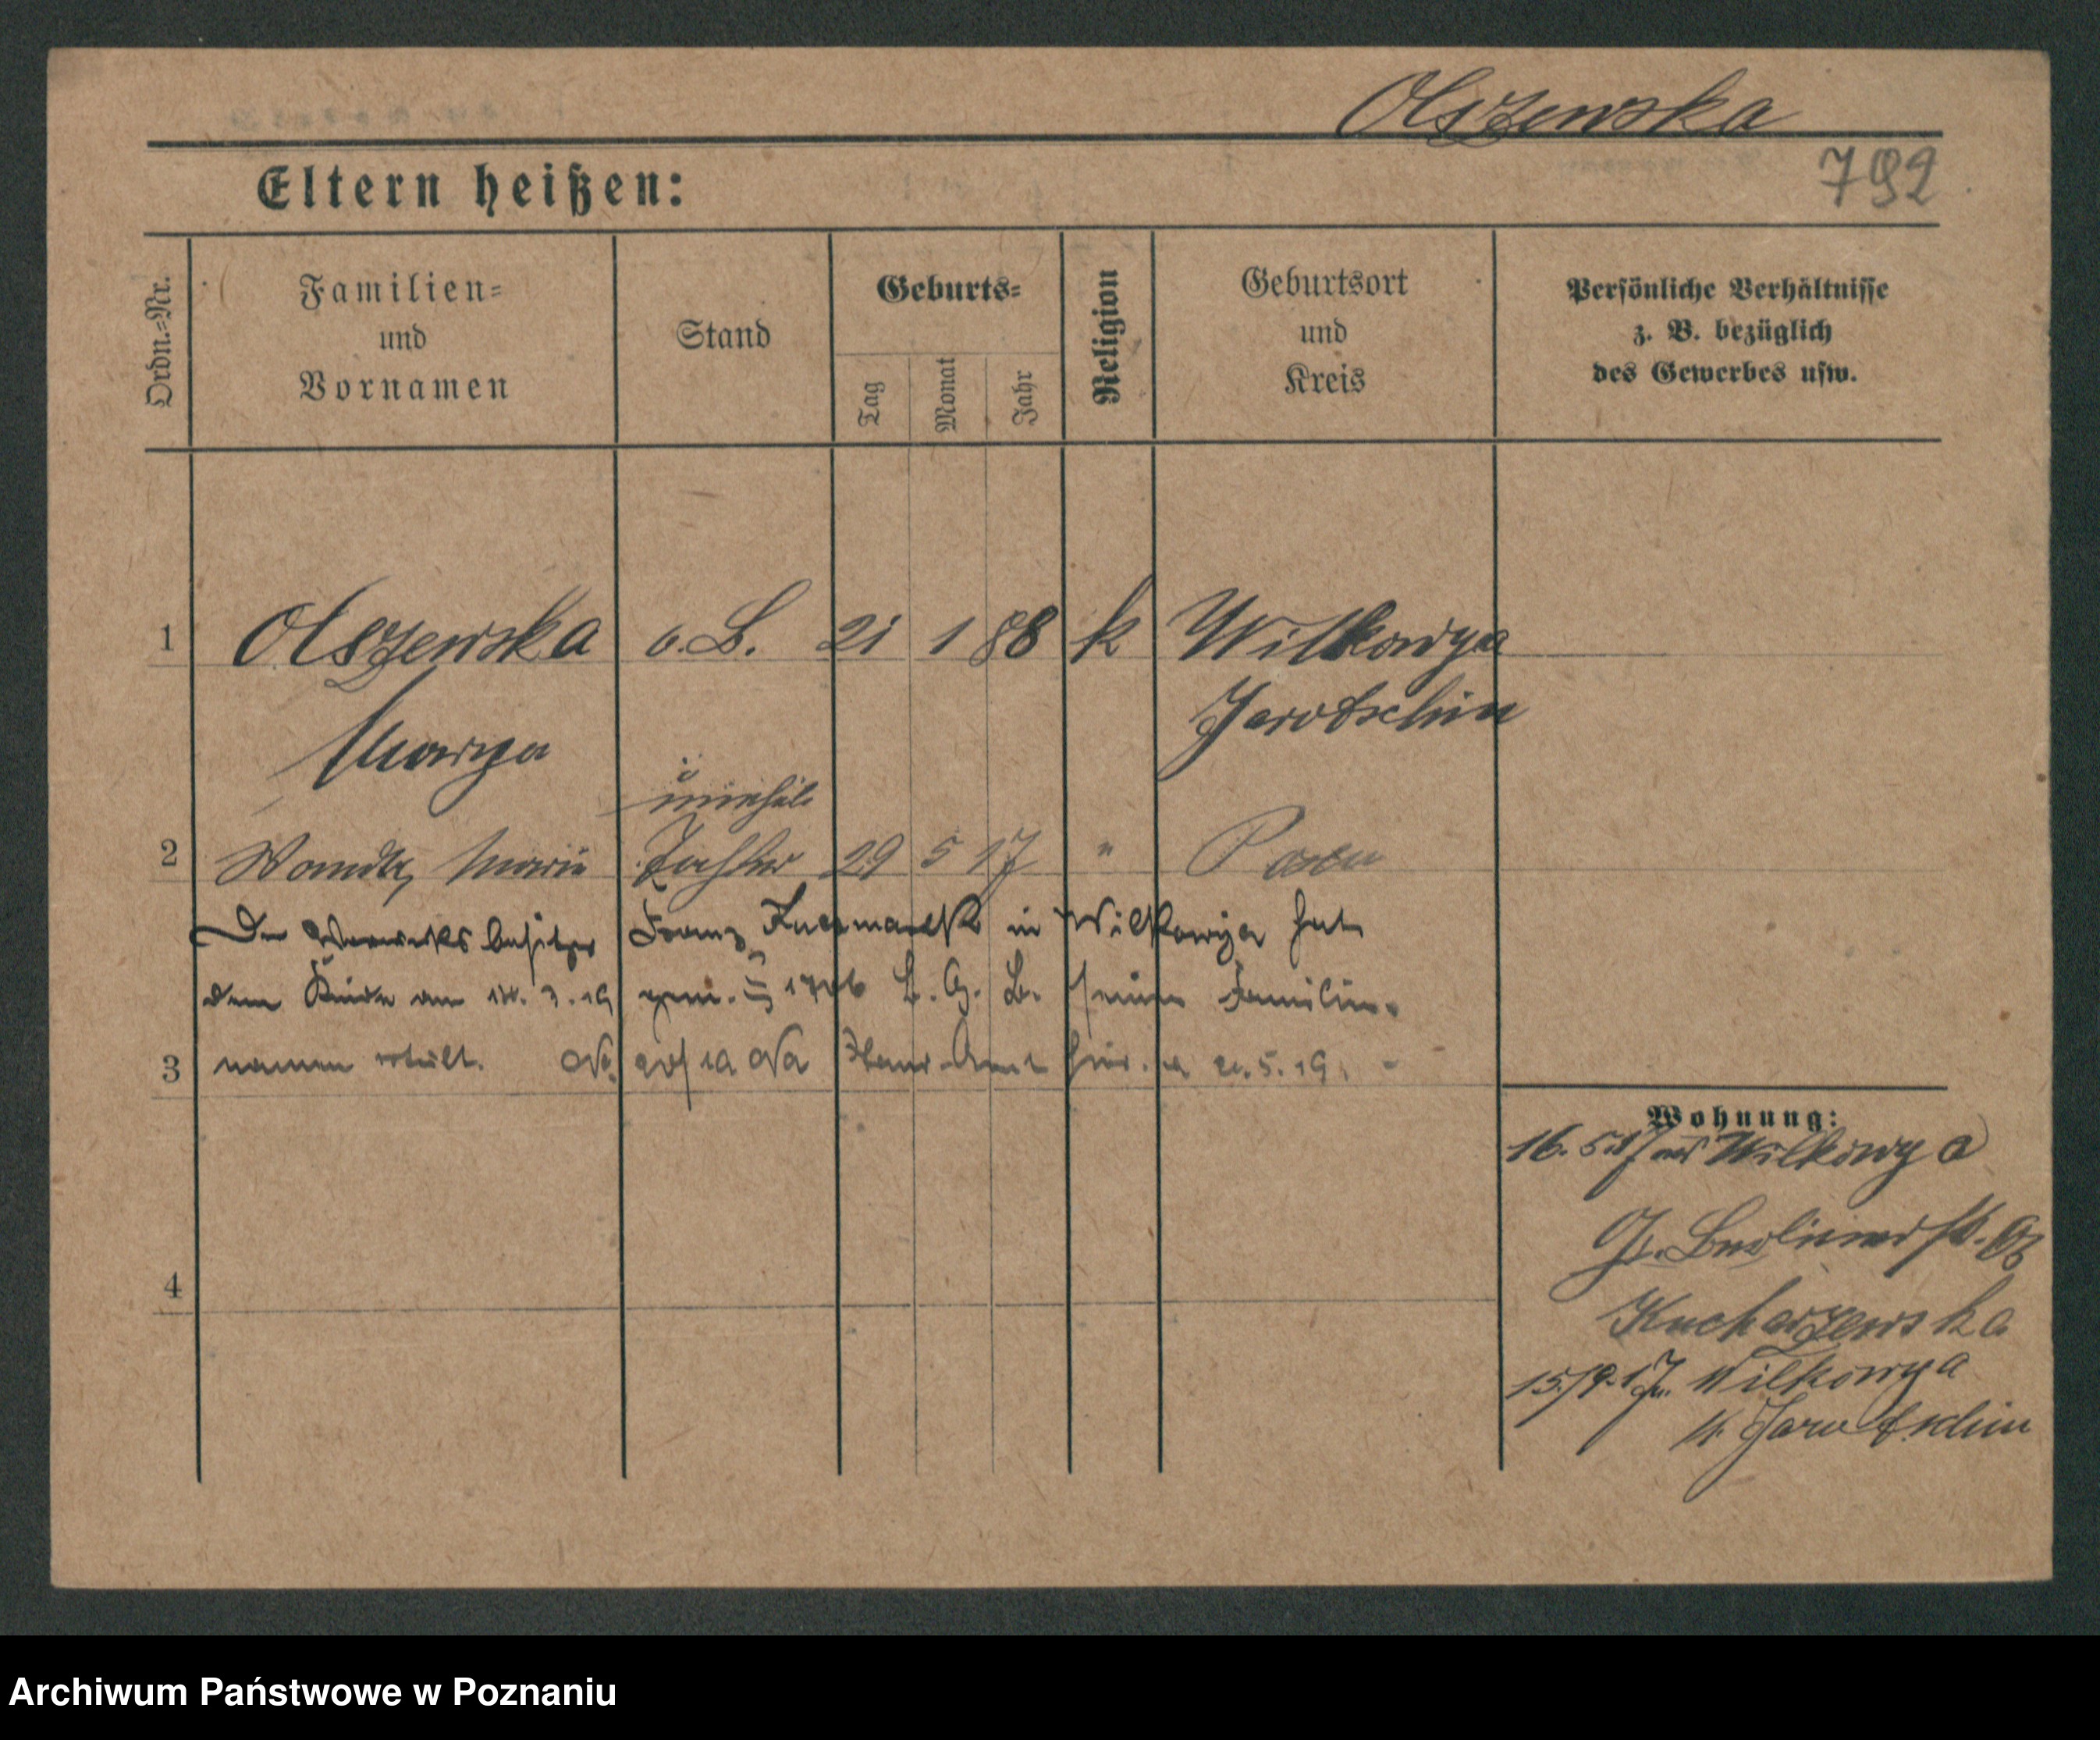 Olszewska
792
Eltern heißen:
Ordn.=Nr.
Familien=
und
Vornamen
Stand
Geburts=
Tag
Monat
Jahr
Religion
Geburtsort
und
Kreis
Persönliche Verhältnisse
z. B. bezüglich
des Gewerbes usw.
1 Olszewska o.B. 21 1 88 k Wilkowya
Jarotschin
Marya
unehel.
2 Wanda, Maria Tochter 29 5 17 " Posen
Der besitzer Franz in Wilkowya hat
dem Kinde am 14. 3. 19 gem. § 1706 B. G. B. seinen Familien-
3 namen erteilt. 5. 19.
Wohnung:
16. 5. 17 aus Wilkowya
Gr. Berlinerstr.
Kucharzewska
15/9. 17. Wilkowya
Jarotschin
4
Archiwum Państwowe w Poznaniu